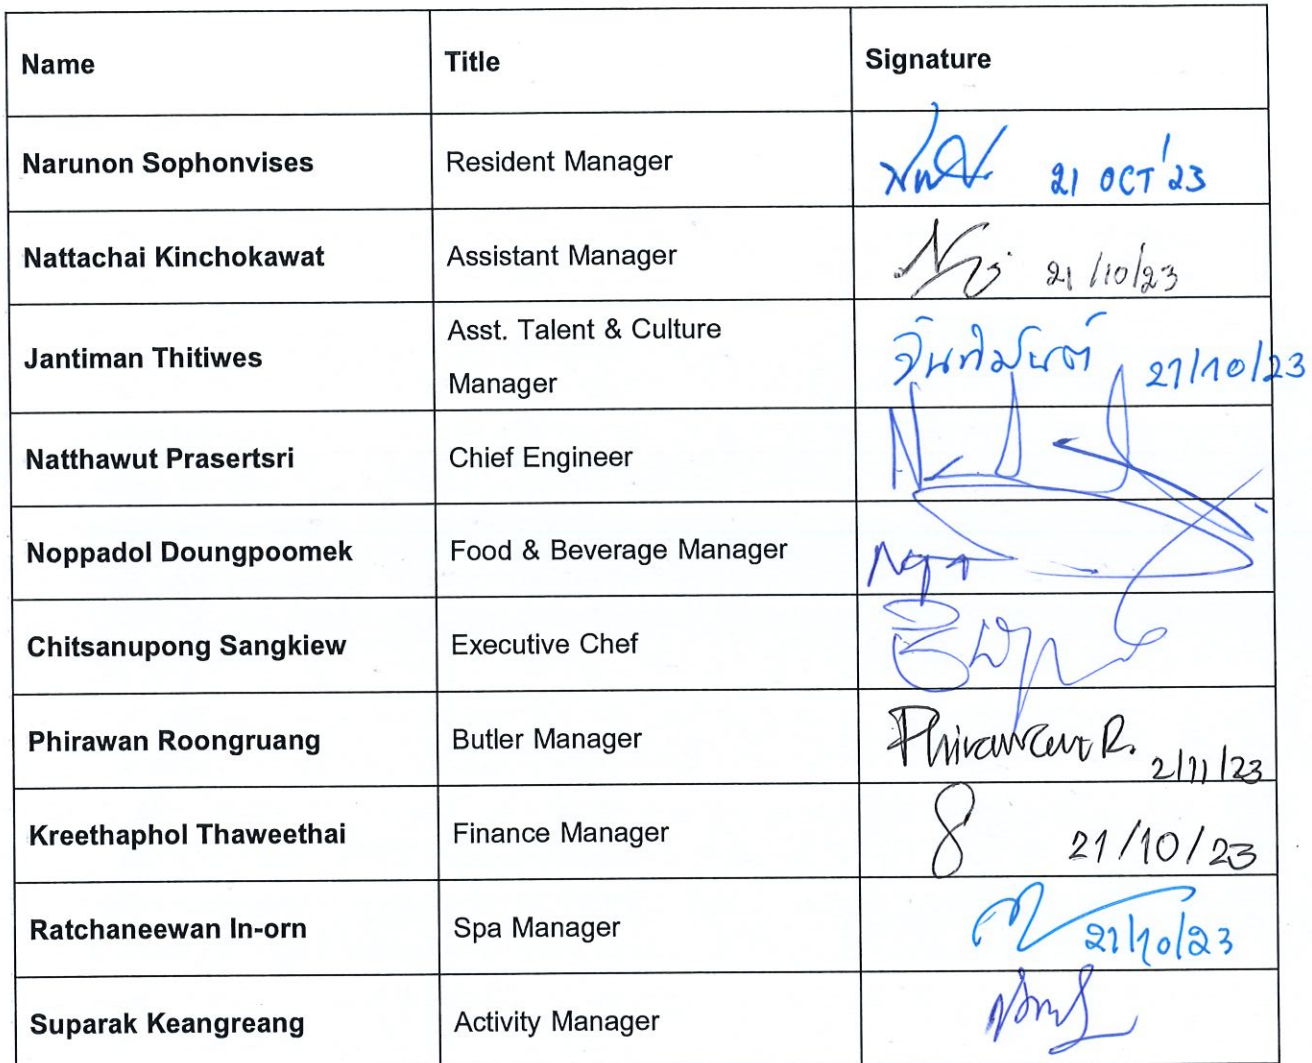 Name Title Signature
Narunon Sophonvises Resident Manager 21 OCT'23
Nattachai Kinchokawat Assistant Manager 21/10/23
Asst. Talent & Culture
Jantiman Thitiwes จันทิมันต์ 21/10/23
Manager
Natthawut Prasertsri Chief Engineer
Noppadol Doungpoomek Food & Beverage Manager
Chitsanupong Sangkiew Executive Chef
Phirawan Roongruang Butler Manager Phirawan R. 2/11/23
Kreethaphol Thaweethai Finance Manager 21/10/23
Ratchaneewan In-orn Spa Manager 21/10/23
Suparak Keangreang Activity Manager